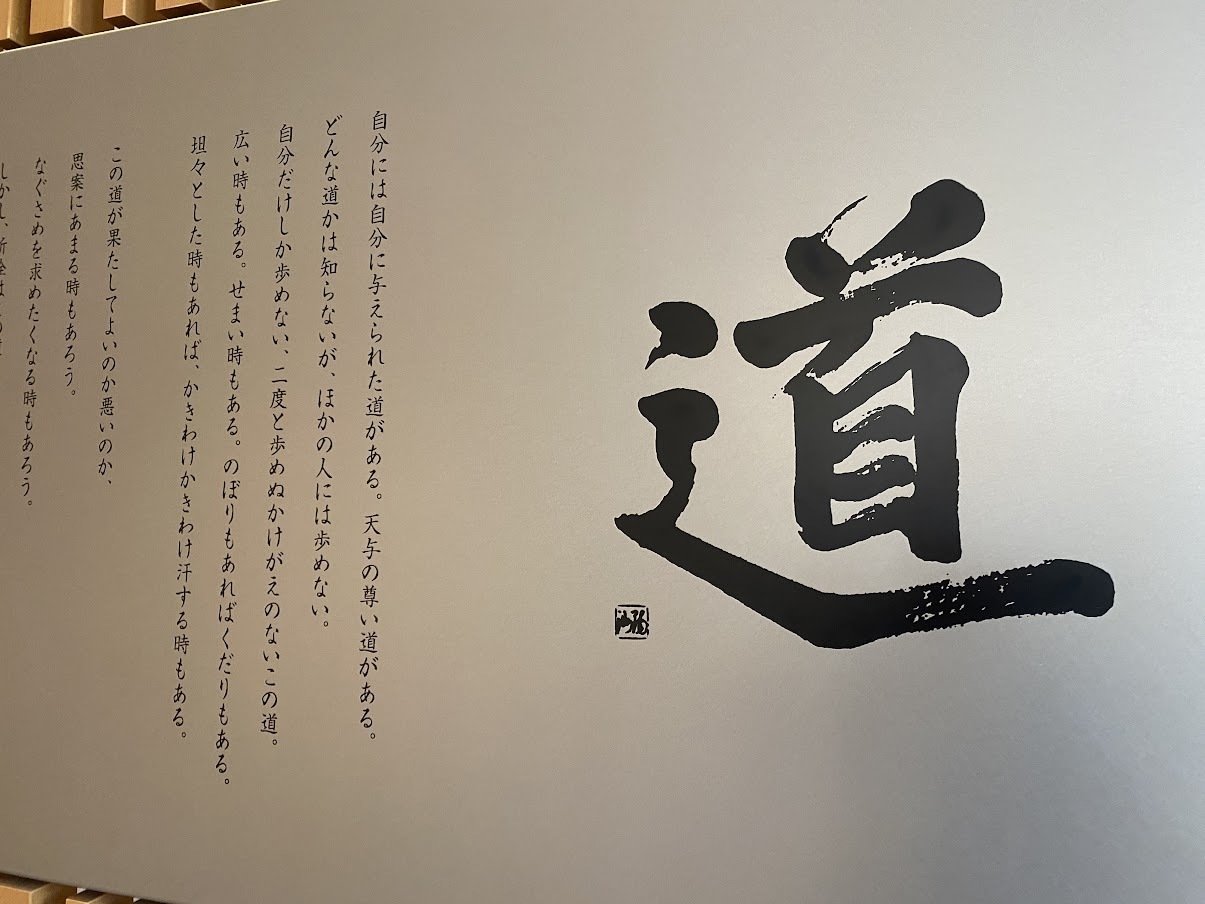 道
自分には自分に与えられた道がある。天与の尊い道がある。
どんな道かは知らないが、ほかの人には歩めない。
自分だけしか歩めない、二度と歩めぬかけがえのないこの道。
広い時もある。せまい時もある。のぼりもあればくだりもある。
坦々とした時もあれば、かきわけかきわけ汗する時もある。
この道が果たしてよいのか悪いのか、
思案にあまる時もあろう。
なぐさめを求めたくなる時もあろう。
しかし、所詮は